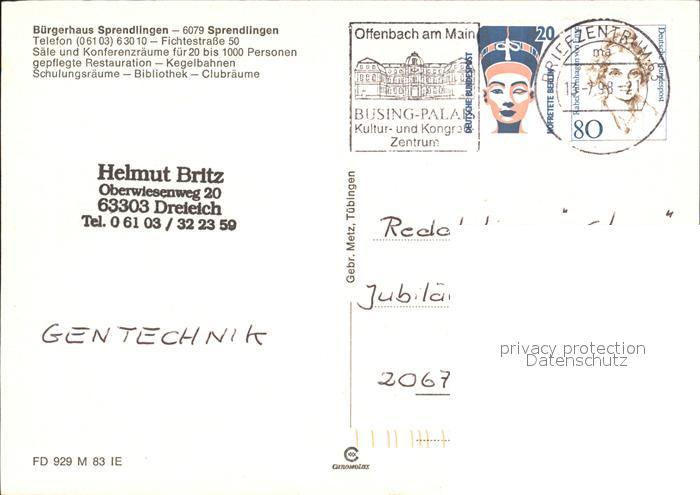 Bürgerhaus Sprendlingen – 6079 Sprendlingen
Telefon (0 61 03) 6 30 10 – Fichtestraße 50
Säle und Konferenzräume für 20 bis 1000 Personen
gepflegte Restauration – Kegelbahnen
Schulungsräume – Bibliothek – Clubräume
Offenbach am Main
BÜSING-PALAI
Kultur- und Kongreß
Zentrum
20
DEUTSCHE BUNDESPOST
NOFRETETE BERLIN
80
Deutsche Bundespost
BRIEFZENTRUM 63
Helmut Britz
Oberwiesenweg 20
63303 Dreieich
Tel. 0 61 03 / 32 23 59
Gebr. Metz, Tübingen
Jubilä
GENTECHNIK
2067
privacy protection
Datenschutz
FD 929 M 83 IE